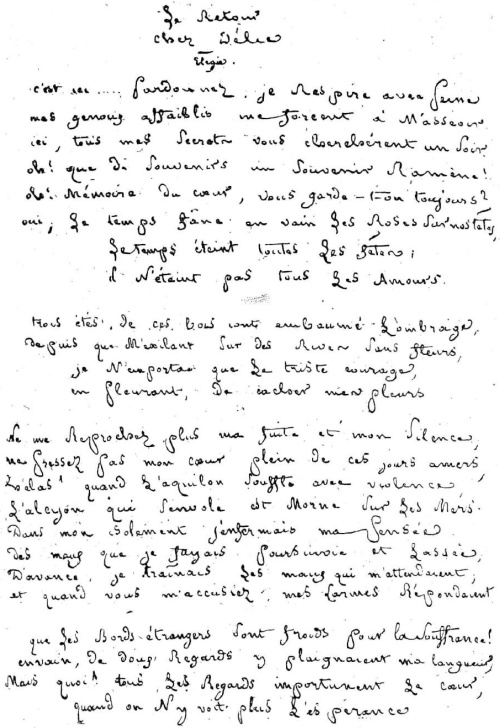 Le Retour
chez Délie
Elégie.
c'est ici ..... Pardonnez, je Respire avec peine
mes genoux affaiblis me forcent à M'asseoir
ici, tous mes Secrets vous cherchèrent un Soir
oh! que de Souvenirs un Souvenir Ramène!
oh! Mémoire du cœur, vous garde-t-on toujours?
oui; Le temps fâne en vain Les Roses Sur nos têtes,
Le temps éteint toutes Les fêtes;
il N'éteint pas tous Les Amours.
trois étés, de ces bois ont embaumé L'ombrage,
depuis que M'exilant Sur des Rives Sans fleurs,
je N'emportai que Le triste courage,
en pleurant, De cacher mes pleurs
Ne me Reprochez plus ma fuite et mon Silence,
ne pressez pas mon cœur plein de ces jours amers,
hélas! quand L'aquilon Souffle avec violence
L'alcyon qui S'envole est Morne Sur Les Mers.
Dans mon isolement j'enfermais ma pensée
Des maux que je fuyais poursuivie et Lassée,
D'avance, je traînais Les maux qui m'attendaient;
et quand vous m'accusiez, mes larmes Répondaient
que Les Bords étrangers Sont froids pour la souffrance!
envain, de doux Regards y plaignaient ma langueur,
Mais quoi! tous Les Regards importunent Le cœur,
quand on N'y voit plus L'espérance